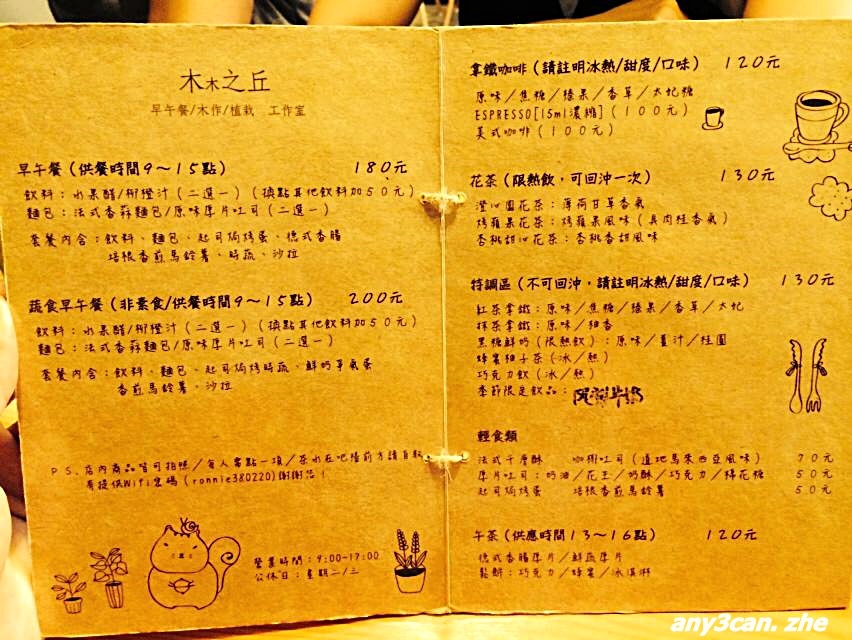 木木之丘
早午餐/木作/植栽 工作室
早午餐(供餐時間9~15點) 180元
飲料:水果醋/柳橙汁(二選一)(換點其他飲料加50元)
麵包:法式香蒜麵包/原味厚片吐司(二選一)
套餐內含:飲料、麵包、起司焗烤蛋、德式香腸
培根香煎馬鈴薯、時蔬、沙拉
蔬食早午餐(非素食/供餐時間9~15點) 200元
飲料:水果醋/柳橙汁(二選一)(換點其他飲料加50元)
麵包:法式香蒜麵包/原味厚片吐司(二選一)
套餐內含:飲料、麵包、起司焗烤時蔬、鮮奶芙氣蛋
香煎馬鈴薯、沙拉
PS.店內商品皆可拍照/每人需點一項/茶水在吧檯前方請自取
有提供Wifi密碼(ronnie380220)謝謝您!
營業時間:9:00-17:00
公休日:星期二/三
拿鐵咖啡(請註明冰熱/甜度/口味) 120元
原味/焦糖/榛果/香草/太妃糖
ESPRESSO[15ml濃縮](100元)
美式咖啡(100元)
花茶(限熱飲,可回沖一次) 130元
澄沁園花茶:薄荷甘草香氣
烤蘋果花茶:烤蘋果風味(具肉桂香氣)
杏桃甜沁花茶:杏桃香甜風味
特調區(不可回沖,請註明冰熱/甜度/口味) 130元
紅茶拿鐵:原味/焦糖/榛果/香草/太妃
抹茶拿鐵:原味/柚香
黑糖鮮奶(限熱飲):原味/薑汁/桂圓
蜂蜜柚子茶(冰/熱)
巧克力飲(冰/熱)
季節限定飲品:
輕食類
法式千層酥 咖椰吐司(道地馬來西亞風味) 70元
厚片吐司:奶油/花生/奶酥/巧克力/棉花糖 50元
起司焗烤蛋 培根香煎馬鈴薯 50元
午茶(供應時間13~16點) 120元
德式香腸厚片/鮮蔬厚片
鬆餅:巧克力/蜂蜜/冰淇淋
any3can. zhe